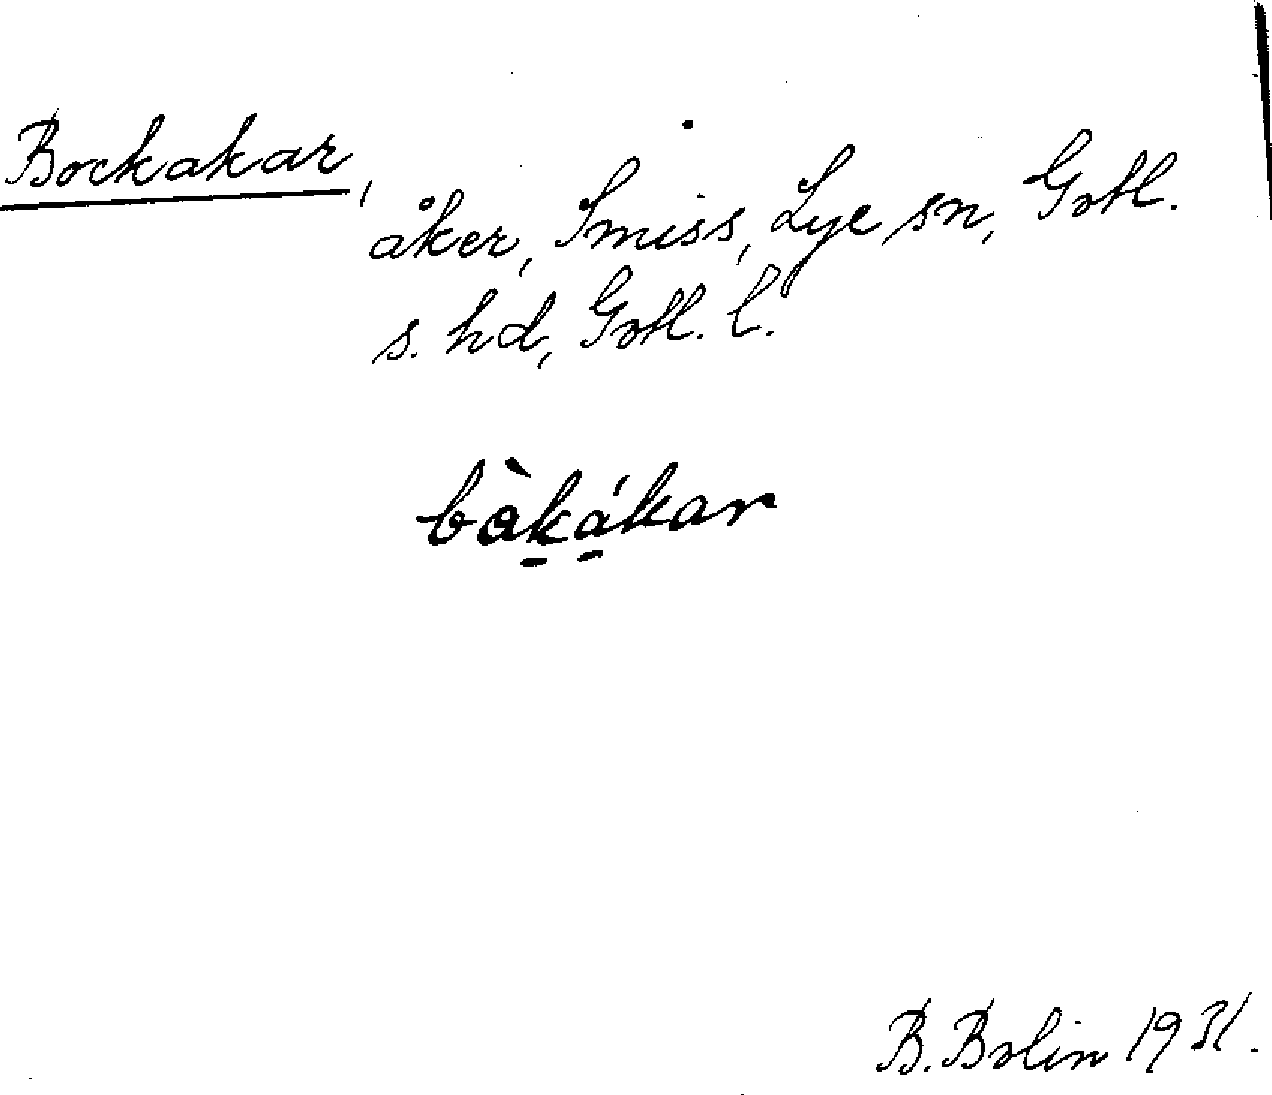 Bockakar,
åker, Smiss, Lye sn, Gotl.
s. hd, Gotl. l.
bòk̠á̠kar
B. Bolin 1931.